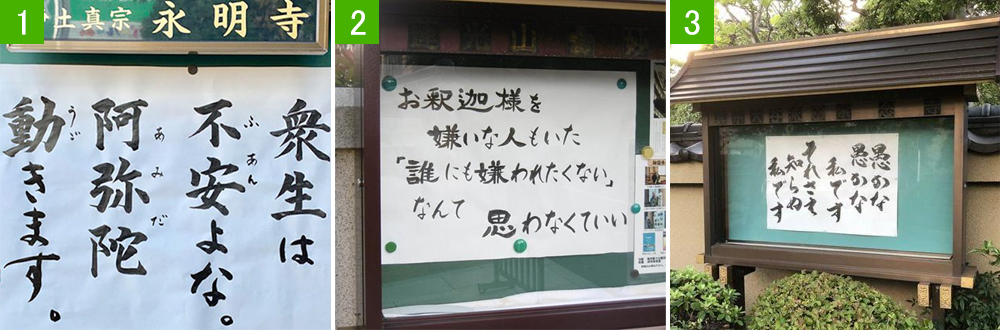 1
土真宗 永明寺
衆生は
不安よな。
ふあん
阿弥陀
あみだ
動きます。
うご
2
お釈迦様を
嫌いな人もいた
「誰にも嫌われたくない」
なんて 思わなくていい
3
愚かな
愚かな
私です
それさえ
知らぬ
私です